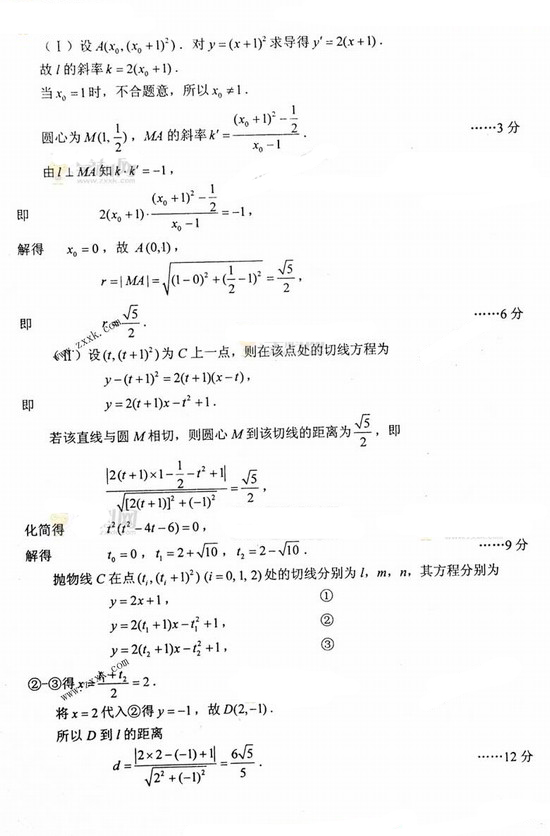 （Ⅰ）设 A(x₀,(x₀+1)²)．对 y=(x+1)² 求导得 y′=2(x+1)．
故 l 的斜率 k=2(x₀+1)．
当 x₀=1 时，不合题意，所以 x₀≠1．
圆心为 M(1, 1/2)，MA 的斜率 k′=((x₀+1)²-1/2)/(x₀-1)． ……3 分
由 l⊥MA 知 k·k′=-1，
即 2(x₀+1)·((x₀+1)²-1/2)/(x₀-1)=-1，
解得 x₀=0，故 A(0,1)，
r=|MA|=√((1-0)²+(1/2-1)²)=√5/2，
即 r=√5/2． ……6 分
（Ⅱ）设 (t,(t+1)²) 为 C 上一点，则在该点处的切线方程为
y-(t+1)²=2(t+1)(x-t)，
即 y=2(t+1)x-t²+1．
若该直线与圆 M 相切，则圆心 M 到该切线的距离为 √5/2，即
|2(t+1)×1-1/2-t²+1|/√([2(t+1)]²+(-1)²)=√5/2，
化简得 t²(t²-4t-6)=0，
解得 t₀=0，t₁=2+√10，t₂=2-√10． ……9 分
抛物线 C 在点 (tᵢ,(tᵢ+1)²) (i=0,1,2) 处的切线分别为 l，m，n，其方程分别为
y=2x+1， ①
y=2(t₁+1)x-t₁²+1， ②
y=2(t₂+1)x-t₂²+1， ③
②-③得 x=(t₁+t₂)/2=2．
将 x=2 代入②得 y=-1，故 D(2,-1)．
所以 D 到 l 的距离
d=|2×2-(-1)+1|/√(2²+(-1)²)=6√5/5． ……12 分
www.zxxk.com
www.zxxk.com